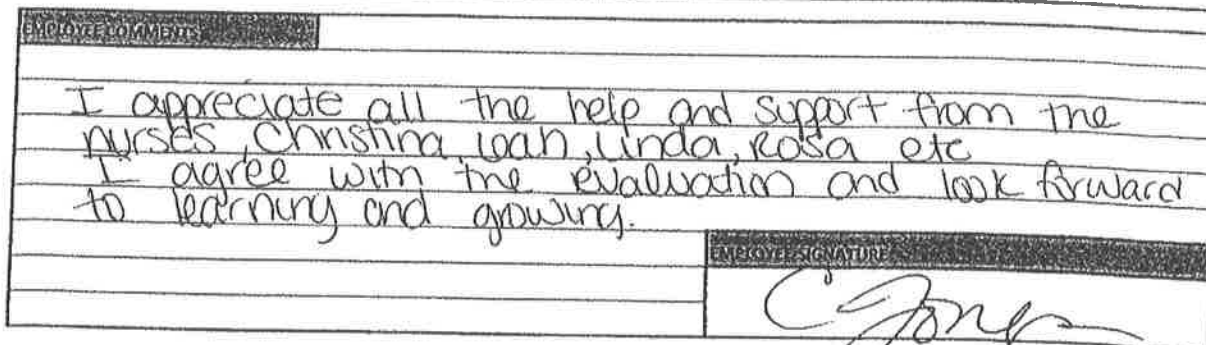 EMPLOYEE COMMENTS
I appreciate all the help and support from the
nurses, Christina, Leah, Linda, Rosa etc
I agree with the evaluation and look forward
to learning and growing.
EMPLOYEE SIGNATURE
C Jones